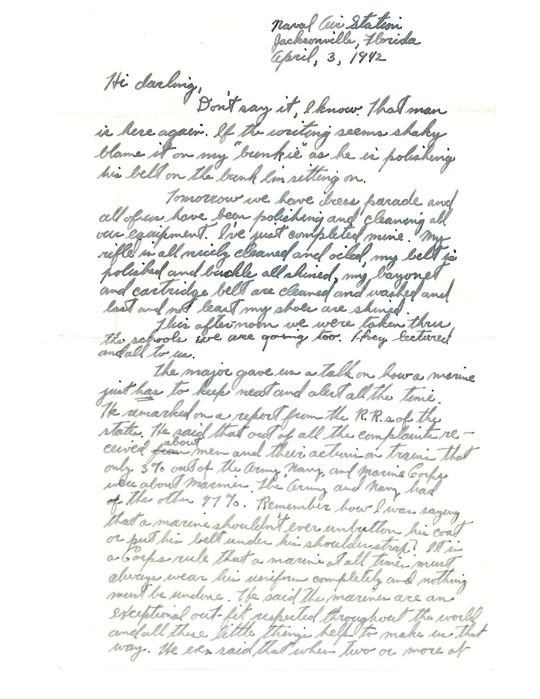 Naval Air Station
Jacksonville, Florida
April, 3, 1942
Hi darling,
Don't say it, I know. That man
is here again. If the writing seems shaky
blame it on my "bunkie" as he is polishing
his belt on the bunk I'm sitting on.
Tomorrow we have dress parade and
all of us have been polishing and cleaning all
our equipment. I've just completed mine. My
rifle is all nicely cleaned and oiled, my belt is
polished and buckle all shined, my bayonet
and cartridge belt are cleaned and washed and
last and not least my shoes are shined.
This afternoon we were taken thru
the schools we are going too. They lectured
and all to us.
The major gave us a talk on how a marine
just has to keep neat and alert all the time.
He remarked on a report from the R.R.s of the
state. He said that out of all the complaints re-
ceived about men and their actions on trains that
only 3% out of the Army, Navy, and Marine Corps
were about Marines. The Army and Navy had
of the other 97%. Remember how I was saying
that a marine shouldn't ever unbutton his coat
or put his belt under his shoulder strap? It is
a Corps rule that a marine at all times must
always wear his uniform completely and nothing
must be undone. He said the marines are an
exceptional out-fit respected throughout the world
and all these little things help to make us that
way. He even said that when two or more of